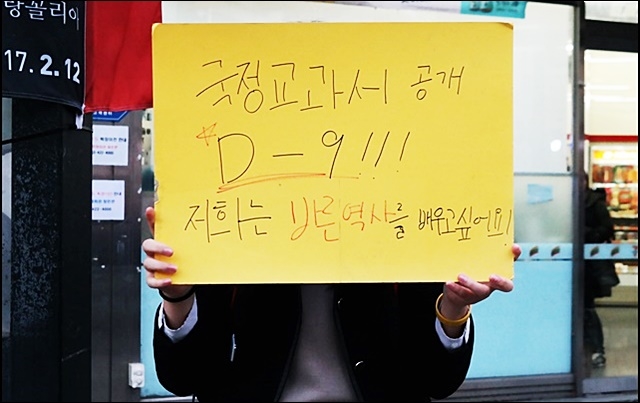 랑꼴리아
17. 2. 12
국정교과서 공개
*D-9!!!
저희는 바른역사를 배우고싶어요!